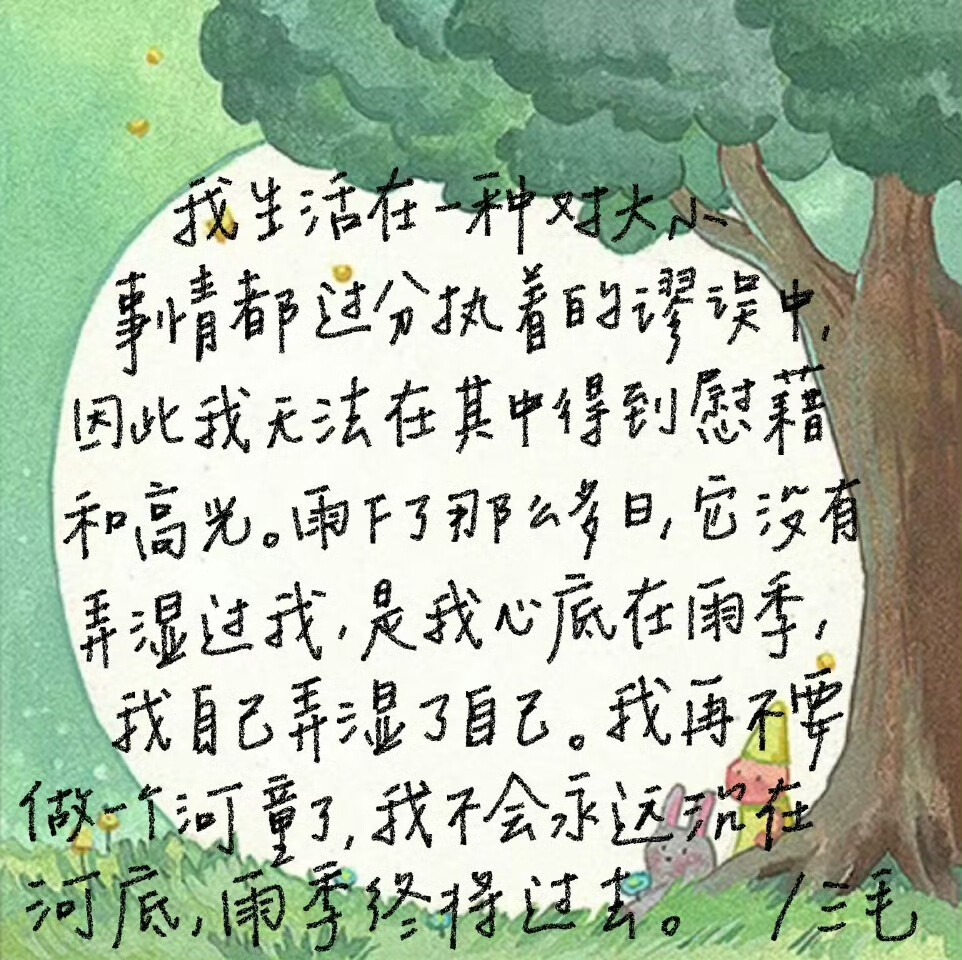 我生活在一种对大小
事情都过分执着的谬误中,
因此我无法在其中得到慰藉
和高光。雨下了那么多日,它没有
弄湿过我,是我心底在雨季,
我自己弄湿了自己。我再不要
做一个河童了,我不会永远沉在
河底,雨季终将过去。 /三毛